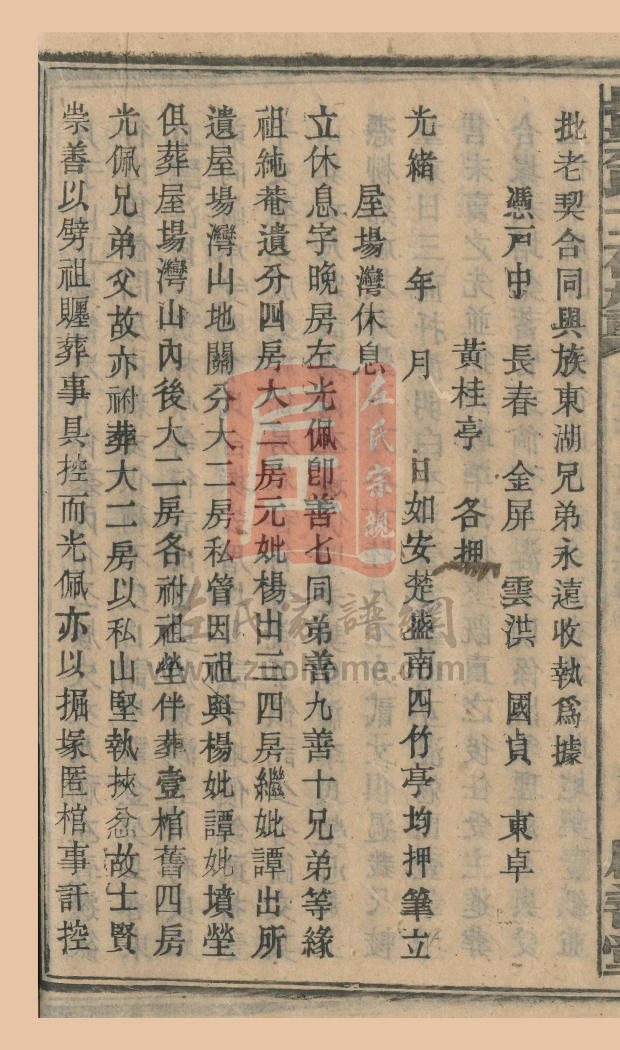 批老契合同與族東湖兄弟永遠收執為據
憑戸中 長春 金屏 雲洪 國貞 東卓
黃桂亭 各押
光緒 年 月 日如安楚盛南四竹亭均押筆立
屋場灣休息
立休息字晚房左光佩卽善七同弟善九善十兄弟等緣
祖純菴遺分四房大二房元妣楊出三四房繼妣譚出所
遺屋場灣山地關分大二房私管因祖與楊妣譚妣墳塋
俱葬屋場灣山內後大二房各祔祖塋伴葬壹棺舊四房
光佩兄弟父故亦祔葬大二房以私山堅執挾忿故士賢
崇善以劈祖贓葬事具控而光佩亦以掘塚匿棺事訐控
左氏宗親
左氏族譜網
www.czuohome.com